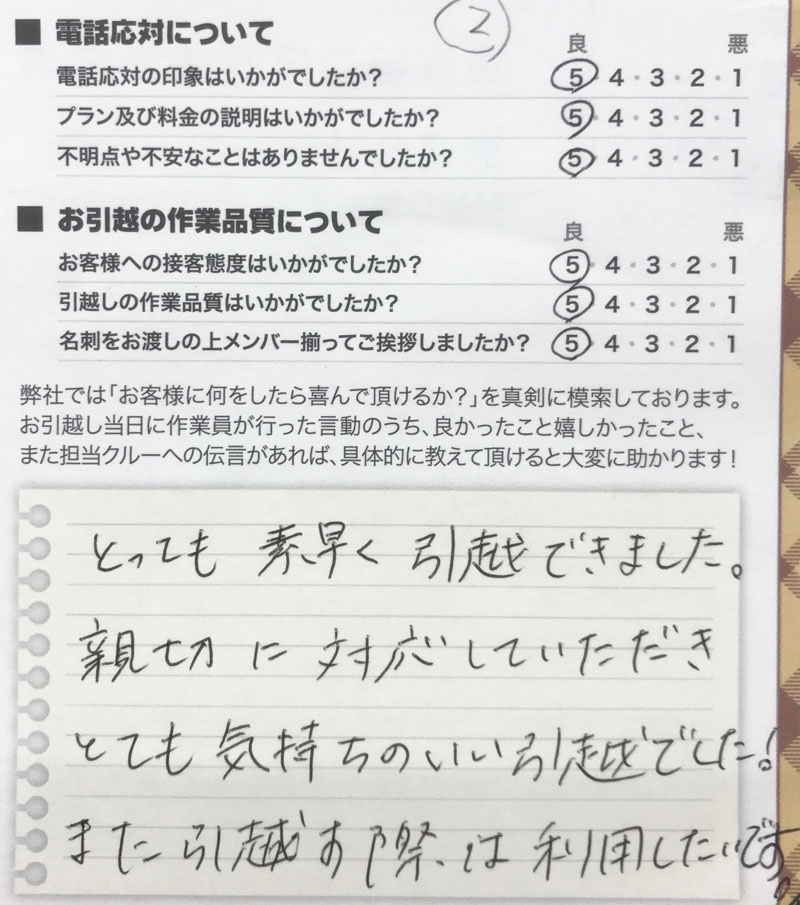 ②
■ 電話応対について
良 悪
電話応対の印象はいかがでしたか？ 5・4・3・2・1
プラン及び料金の説明はいかがでしたか？ 5・4・3・2・1
不明点や不安なことはありませんでしたか？ 5・4・3・2・1
■ お引越の作業品質について
良 悪
お客様への接客態度はいかがでしたか？ 5・4・3・2・1
引越しの作業品質はいかがでしたか？ 5・4・3・2・1
名刺をお渡しの上メンバー揃ってご挨拶しましたか？ 5・4・3・2・1
弊社では「お客様に何をしたら喜んで頂けるか？」を真剣に模索しております。
お引越し当日に作業員が行った言動のうち、良かったこと嬉しかったこと、
また担当クルーへの伝言があれば、具体的に教えて頂けると大変に助かります！
とっても 素早く 引越できました。
親切に対応していただき
とても気持ちのいい引越でした！
また引越す際は利用したいです。